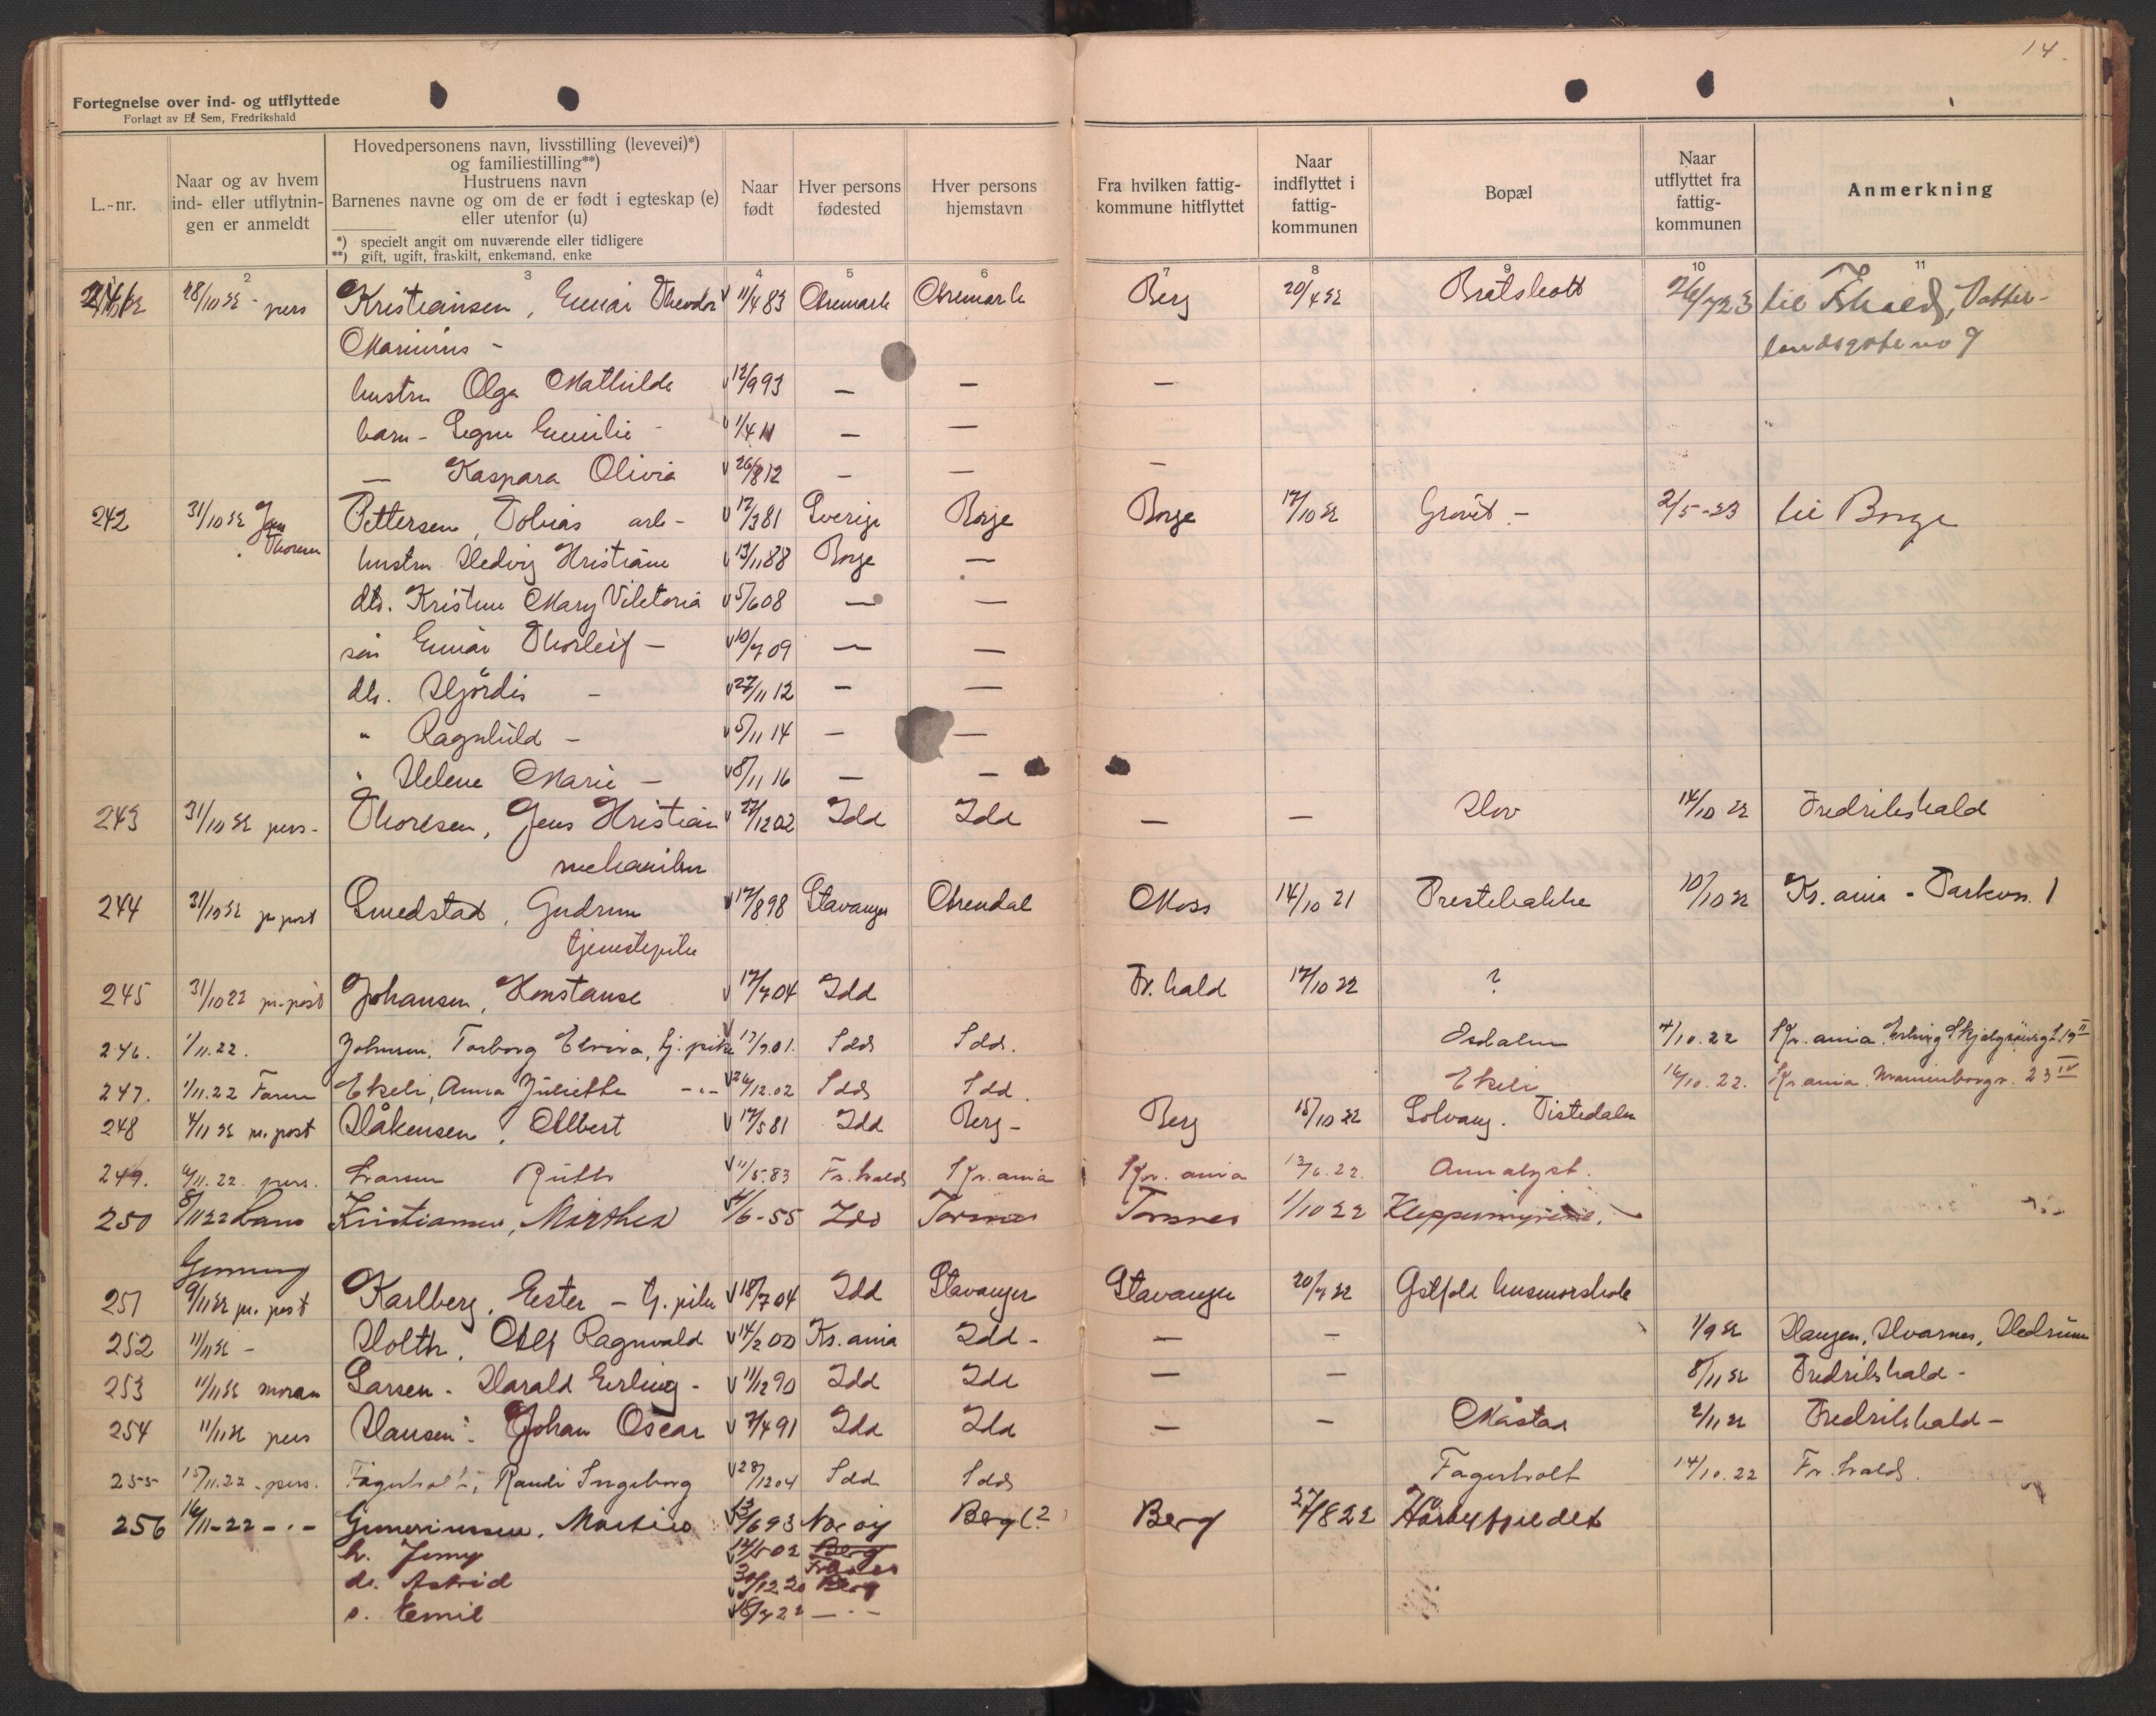 14.
Fortegnelse over ind- og utflyttede
Forlagt av E. Sem, Fredrikshald
L.-nr.
Naar og av hvem ind- eller utflytnin-gen er anmeldt
Hovedpersonens navn, livsstilling (levevei)*)
og familiestilling**)
Hustruens navn
Barnenes navne og om de er født i egteskap (e)
eller utenfor (u)
*) specielt angit om nuværende eller tidligere
**) gift, ugift, fraskilt, enkemand, enke
Naar født
Hver persons fødested
Hver persons hjemstavn
Fra hvilken fattig-kommune hitflyttet
Naar indflyttet i fattig-kommunen
Bopæl
Naar utflyttet fra fattig-kommunen
Anmerkning
2 3 4 5 6 7 8 9 10 11
28/10 22 - pers Kristiansen, Einar Theodor 11/4 83 Aremark Aremark Berg 20/4 22 Bråtskott 26/7 23 til Fhald, Vatter-
Marinius - landsgate no 9
hustru Olga Mathilde 12/9 93 — — —
barn - Signe Emilie - 1/4 11 — —
— Kaspara Olivia 26/8 12 — — —
242 31/10 22 Jens Pettersen, Tobias arb- 12/3 81 Sverige Borge Borge 17/10 22 Grövet - 2/5-23 til Borge
Thoresen hustru Hedvig Kristiane 13/11 88 Borge —
dtr. Kristine Mary Viktoria 5/6 08 — —
søn Einar Thorleif - 10/7 09 — —
dtr. Hjördis - 27/11 12 — —
" Ragnhild - 5/11 14 — —
" Helene Marie - 8/11 16 — —
243 31/10 22 pers- Thoresen, Jens Kristian 27/12 02 Idd Idd — — Hov 14/10 22 Fredrikshald
mekaniker
244 31/10 22 pr post Smedstad, Gudrun 17/8 98 Stavanger Arendal Moss 14/10 21 Prestebakke 10/10 22 Kr.ania - Parkvn. 1
tjenestepike
245 31/10 22 pr. post Johansen, Konstanse 17/7 04 Idd Fr.hald 17/10 22 ?
246. 1/11.22. Johnsen, Torborg Elvira, tj. pike 17/9.01. Idd Idd. Isdalen 4/10.22 Kr.ania. Erling Skjalgsönsgt. 19 II
247. 1/11.22 Faren Ekeli, Anna Juliette -"- 26/12.02 Idd Idd. Ekeli 16/10.22. Kr.ania. Uranienborgv. 23 IV
248 4/11 22 pr. post Håkensen, Albert 17/5 81 Idd Berg - Berg 15/10 22 Solvang. Tistedalen
249. 6/11.22. pers. Larsen Ruth 11/5.83 Fr.hald Kr.ania Kr.ania 13/6.22. Annalyst.
250 8/11 22 Lars Kristiansen, Marthea 4/6-55 Idd Torsnes Torsnes 1/10 22 Kleppermyrene.
251 9/11 22 pr. post Karlberg, Ester - tj. pike 18/7 04 Idd Stavanger Stavanger 20/7 22 Østfold husmorskole
252 11/11 22 - Holth, Alf Ragnvald 14/2 00 Kr.ania Idd - — — 1/9 22 Haugen, Hvarnes, Hedrum
253 11/11 22 moran Larsen - Harald Erling - 11/12 90 Idd Idd — — 8/11 22 Fredrikshald -
254 11/11 22 pers Hansen - Johan Oscar 7/4 91 Idd Idd — — Måstad 2/11 22 Fredrikshald -
255 15/11.22 - pers. Fagerholt, Randi Ingeborg 28/12 04 Idd Idd Fagerholt 14/10.22 Fr.hald.
256 16/11-22 -"- Martin 13/6 93 Berg (? Berg 27/8 22
h. Jenny Berg
dr. Astrid 30/12 20 Berg
s. Emil — " —